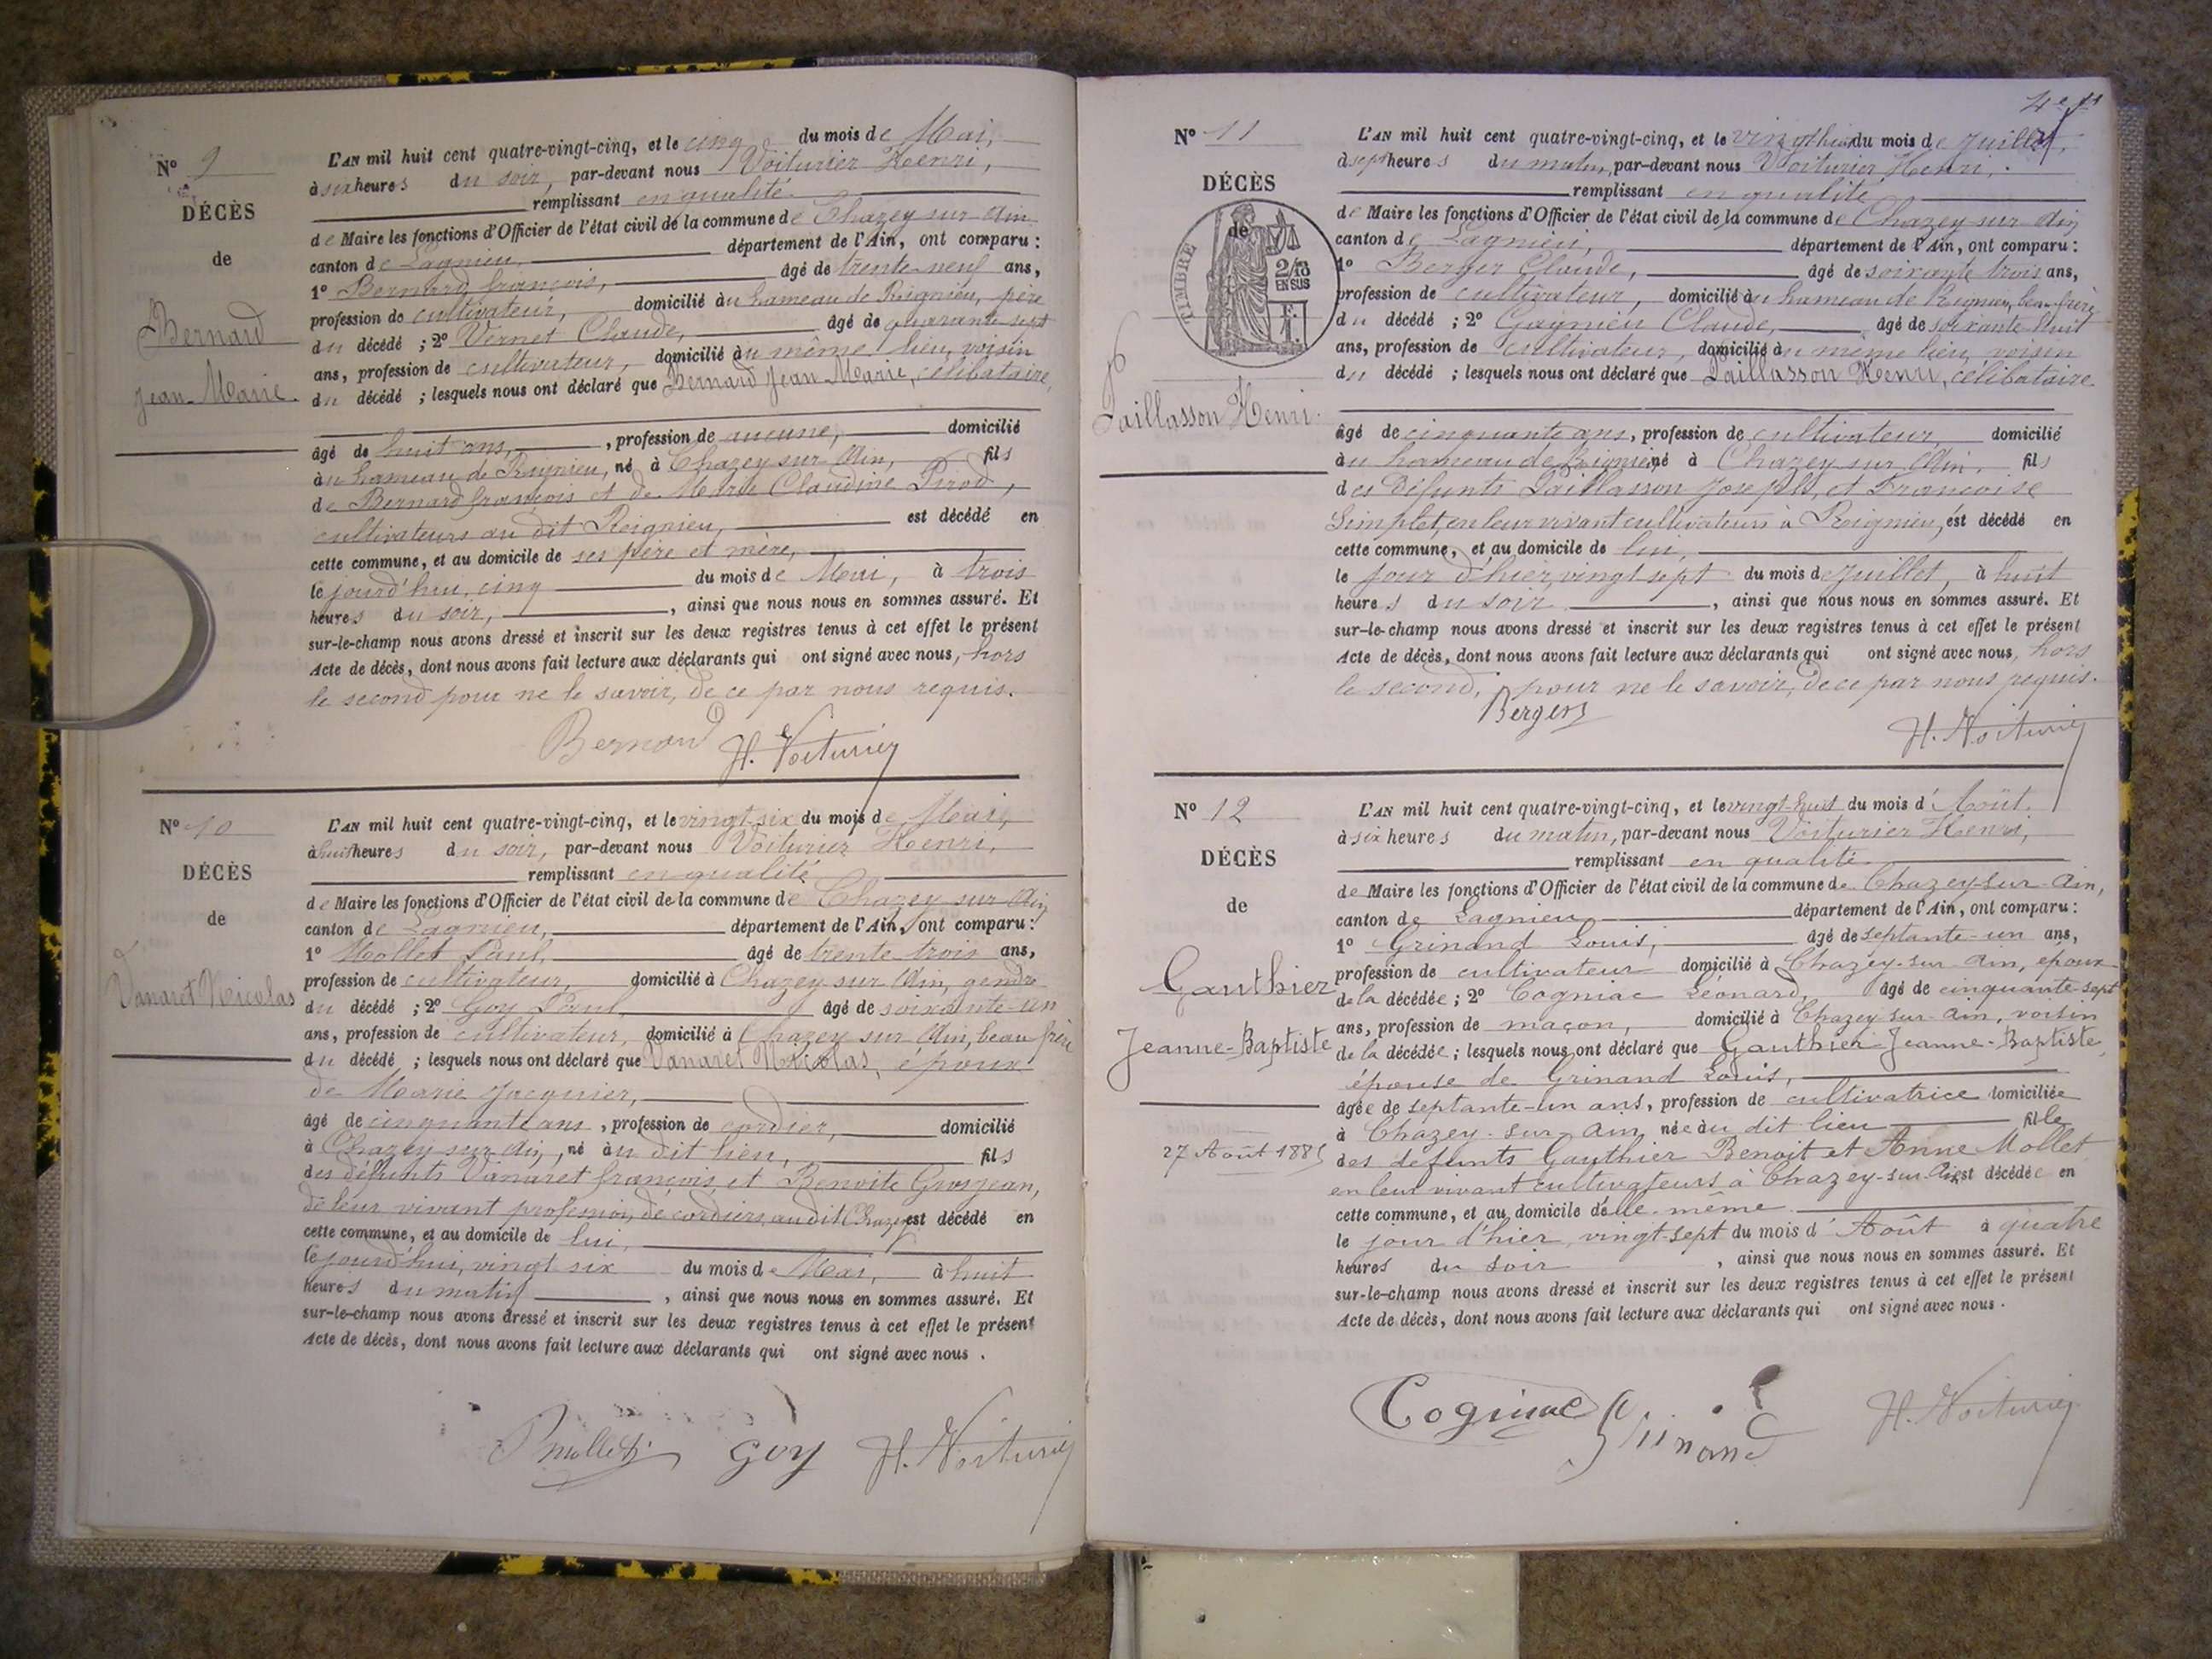 N° 9
DÉCÈS
de
Bernard
Jean-Marie.
L'AN mil huit cent quatre-vingt-cinq, et le cinq du mois de Mai,
à six heures du soir, par-devant nous Voiturier Henri,
remplissant en qualité
de Maire les fonctions d'Officier de l'état civil de la commune de Chazey sur Ain
canton de Lagnieu, département de l'Ain, ont comparu :
1° Bernard françois, âgé de trente-neuf ans,
profession de cultivateur, domicilié au hameau de Rignieu, père
du décédé ; 2° Vernet Claude, âgé de quarante sept
ans, profession de cultivateur, domicilié au même lieu, voisin
du décédé ; lesquels nous ont déclaré que Bernard Jean-Marie, célibataire,
âgé de huit ans, , profession de aucune, domicilié
au hameau de Rignieu, né à Chazey sur Ain, fils
de Bernard françois et de Marie Claudine Pirod,
cultivateurs au dit Reignieu, est décédé en
cette commune, et au domicile de ses père et mère,
le jourd'hui, cinq du mois de Mai, à trois
heures du soir, , ainsi que nous nous en sommes assuré. Et
sur-le-champ nous avons dressé et inscrit sur les deux registres tenus à cet effet le présent
Acte de décès, dont nous avons fait lecture aux déclarants qui ont signé avec nous, hors
le second pour ne le savoir, de ce par nous requis.
Bernard H. Voiturier
N° 10
DÉCÈS
de
Vanaret Nicolas
L'AN mil huit cent quatre-vingt-cinq, et le vingt-six du mois de Mai,
à huit heures du soir, par-devant nous Voiturier Henri,
remplissant en qualité
de Maire les fonctions d'Officier de l'état civil de la commune de Chazey sur Ain
canton de Lagnieu, département de l'Ain, ont comparu :
1° Mollet Paul, âgé de trente trois ans,
profession de cultivateur, domicilié à Chazey sur Ain, gendre
du décédé ; 2° Goy Paul, âgé de soixante-un
ans, profession de cultivateur, domicilié à Chazey sur Ain, beau frère
du décédé ; lesquels nous ont déclaré que Vanaret Nicolas, époux
de Marie Jacquier,
âgé de cinquante ans , profession de cordier, domicilié
à Chazey sur Ain, né au dit lieu, fils
des défunts Vanaret françois et Benoite Grosjean,
de leur vivant profession de cordiers, au dit Chazey est décédé en
cette commune, et au domicile de lui,
le jourd'hui, vingt six du mois de Mai, à huit
heures du matin , ainsi que nous nous en sommes assuré. Et
sur-le-champ nous avons dressé et inscrit sur les deux registres tenus à cet effet le présent
Acte de décès, dont nous avons fait lecture aux déclarants qui ont signé avec nous .
P mollet GOY H. Voiturier
4e
N° 11
DÉCÈS
de
TIMBRE
2/10
EN SUS
Paillasson Henri.
L'AN mil huit cent quatre-vingt-cinq, et le vingt huit du mois de Juillet,
à sept heures du matin, par-devant nous Voiturier Henri,
remplissant en qualité
de Maire les fonctions d'Officier de l'état civil de la commune de Chazey-sur-Ain
canton de Lagnieu, département de l'Ain, ont comparu :
1° Berger Claude, âgé de soixante trois ans,
profession de cultivateur, domicilié au hameau de Rignieu, beau-frère
du décédé ; 2° Gagnieu Claude, âgé de soixante-huit
ans, profession de cultivateur, domicilié au même lieu, voisin
du décédé ; lesquels nous ont déclaré que Paillasson Henri, célibataire.
âgé de cinquante ans, profession de cultivateur, domicilié
au hameau de Reignieu, né à Chazey sur Ain, fils
des Défunts Paillasson Joseph, et Francoise
Simplet, en leur vivant cultivateurs à Reignieu, est décédé en
cette commune, et au domicile de lui,
le jour d'hier, vingt sept du mois de Juillet, à huit
heures du soir , ainsi que nous nous en sommes assuré. Et
sur-le-champ nous avons dressé et inscrit sur les deux registres tenus à cet effet le présent
Acte de décès, dont nous avons fait lecture aux déclarants qui ont signé avec nous, hors
le second, pour ne le savoir, de ce par nous requis.
Berger H. Voiturier
N° 12
DÉCÈS
de
Gauthier
Jeanne-Baptiste
27 Août 1885
L'AN mil huit cent quatre-vingt-cinq, et le vingt-huit du mois d'Août.
à six heures du matin, par-devant nous Voiturier Henri,
remplissant en qualité
de Maire les fonctions d'Officier de l'état civil de la commune de Chazey-sur-Ain,
canton de Lagnieu, département de l'Ain, ont comparu :
1° Grinand Louis, âgé de septante-un ans,
profession de cultivateur domicilié à Chazey-sur-Ain, époux
de la décédée ; 2° Cogniac Léonard, âgé de cinquante-sept
ans, profession de maçon, domicilié à Chazey-sur-Ain, voisin
de la décédée ; lesquels nous ont déclaré que Gauthier Jeanne-Baptiste,
épouse de Grinand Louis,
âgée de septante-un ans, profession de cultivatrice domiciliée
à Chazey-sur-Ain, née au dit lieu fille
des défunts Gauthier Benoit et Anne Mollet
en leur vivant cultivateurs à Chazey-sur-Ain est décédée en
cette commune, et au domicile d'elle-même
le jour d'hier, vingt-sept du mois d'Août à quatre
heures du soir , ainsi que nous nous en sommes assuré. Et
sur-le-champ nous avons dressé et inscrit sur les deux registres tenus à cet effet le présent
Acte de décès, dont nous avons fait lecture aux déclarants qui ont signé avec nous .
Cogniac Grinand H. Voiturier